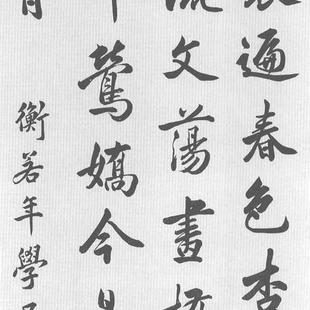 遍春色杏
流文蕩畫
鶯嬌今
衡若年學